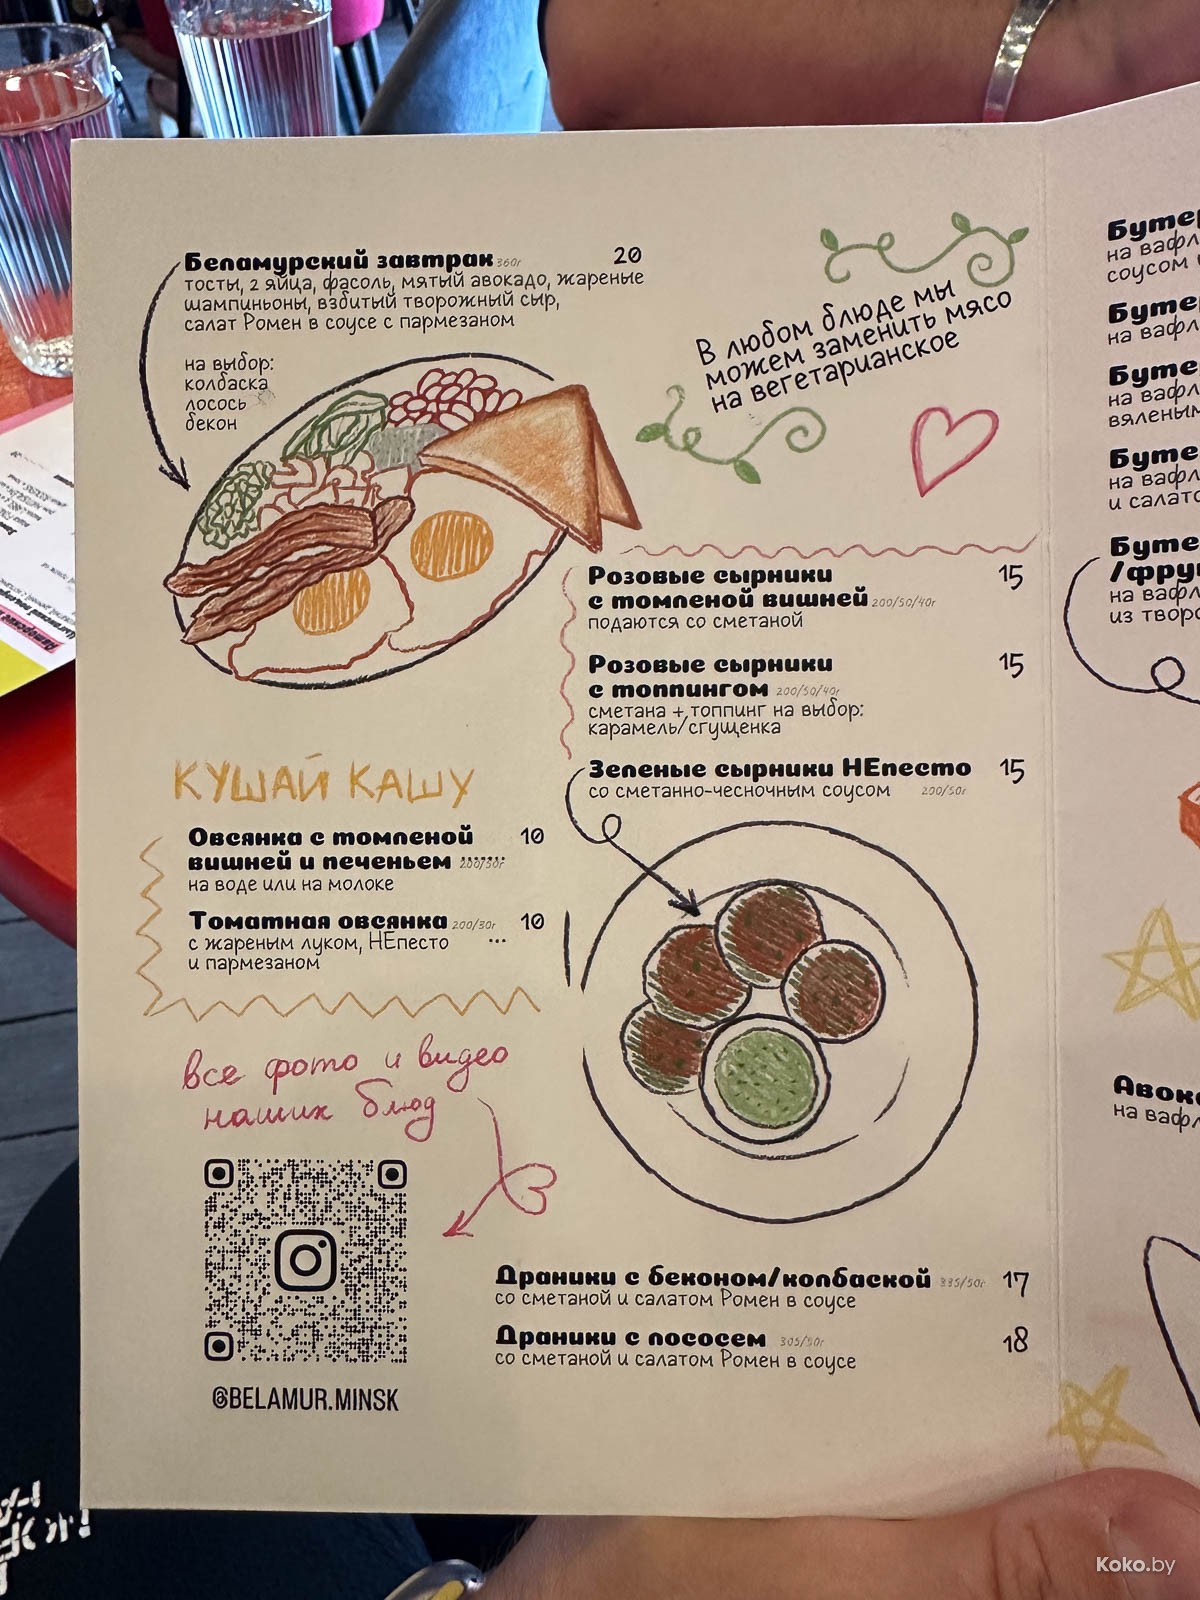 Беламурский завтрак 360г 20
тосты, 2 яйца, фасоль, мятый авокадо, жареные
шампиньоны, взбитый творожный сыр,
салат Ромен в соусе с пармезаном
на выбор:
колбаска
лосось
бекон
В любом блюде мы
можем заменить мясо
на вегетарианское
Розовые сырники 15
с томленой вишней 200/50/40г
подаются со сметаной
Розовые сырники 15
с топпингом 200/50/40г
сметана + топпинг на выбор:
карамель/сгущенка
Зеленые сырники НЕпесто 15
со сметанно-чесночным соусом 200/50г
КУШАЙ КАШУ
Овсянка с томленой 10
вишней и печеньем 200/50г
на воде или на молоке
Томатная овсянка 200/30г 10
с жареным луком, НЕпесто ...
и пармезаном
все фото и видео
наших блюд
@BELAMUR.MINSK
Драники с беконом/колбаской 335/50г 17
со сметаной и салатом Ромен в соусе
Драники с лососем 305/50г 18
со сметаной и салатом Ромен в соусе
на вафл
соусом
на вафл
на вафл
вяленым
на вафл
и салато
/фру
на вафл
из творо
Авок
на вафл
Koko.by